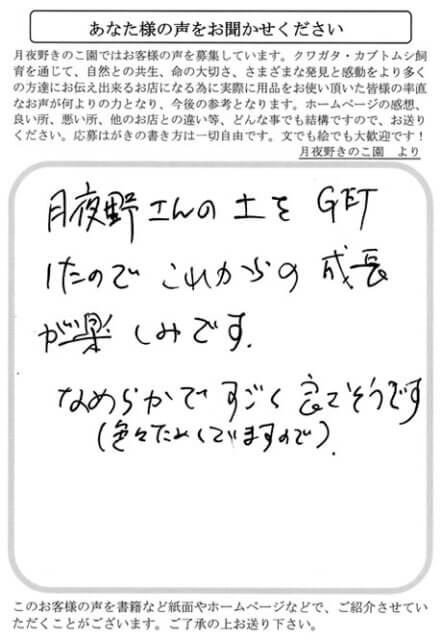 あなた様の声をお聞かせください
月夜野きのこ園ではお客様の声を募集しています。クワガタ・カブトムシ飼
育を通じて、自然との共生、命の大切さ、さまざまな発見と感動をより多く
の方達にお伝え出来るお店になる為に実際に用品をお使い頂いた皆様の率直
なお声が何よりの力となり、今後の参考となります。ホームページの感想、
良い所、悪い所、他のお店との違い等、どんな事でも結構ですので、お送り
ください。応募はがきの書き方は一切自由です。文でも絵でも大歓迎です！
月夜野きのこ園 より
月夜野さんの土をGET
したので これからの 成長
が楽しみです.
なめらかで すごく 良さそうです
(色々ためしていますので).
このお客様の声を書籍など紙面やホームページなどで、ご紹介させてい
ただくことがございます。ご了承の上お送り下さい。